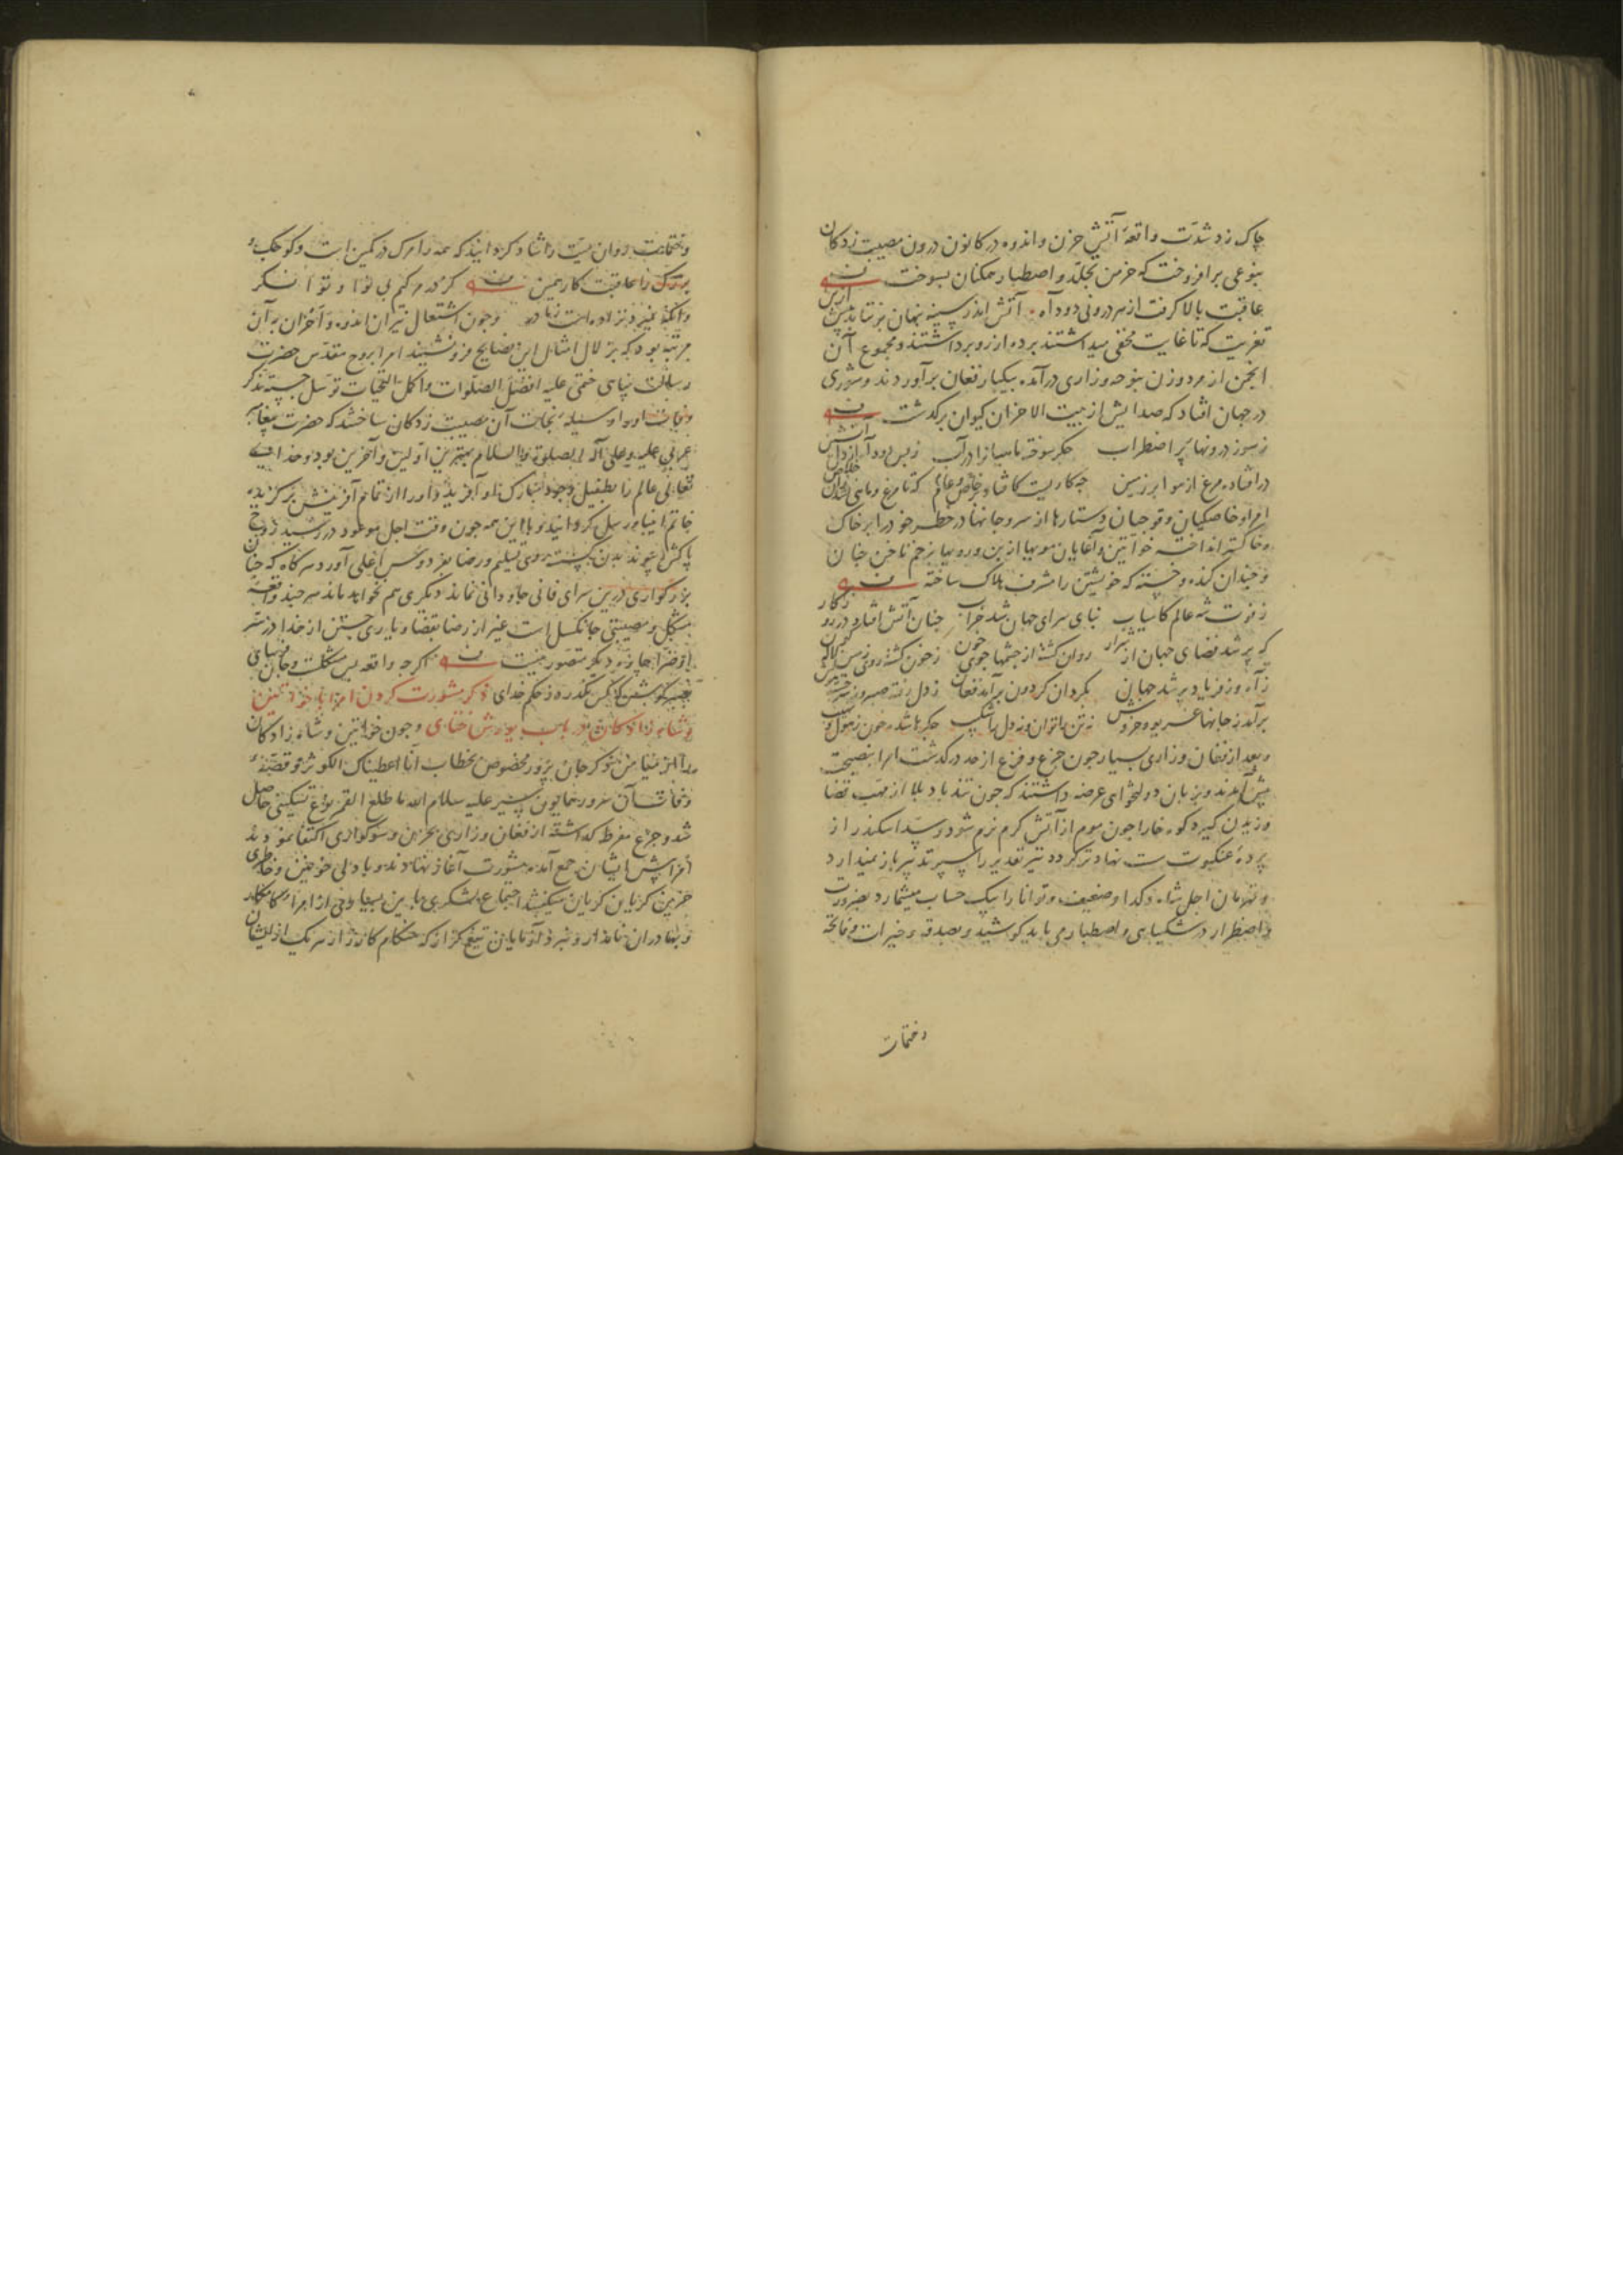 چاک زد شدت واقعهٔ آتش حزن و اندوه در کانون درون مصیبت زدکان
بنوعی برافروخت که خرمن تجلد و اصطبار همکنان بسوخت
عاقبت بالا گرفت از هر درونی دود آه آتش اندر سینه پنهان برنتابد بیش ازین
تعزیت که تا غایت مخفی میداشتند پرده از رو برداشتند و مجموع آن
انجمن از مرد و زن بنوحه و زاری درآمده بیکبار فغان برآوردند و شوری
در جهان افتاد که صدایش از بیت الاحزان کیوان برگذشت
ز سوز درونها پر اضطراب جکر سوخته ماهیانرا در آب ز بس دود آه از دل
در افتاده مرغ از هوا بر زمین چه کاریست کافتاد بر خاص و عام که تا مرغ و ماهی
امرا و خاصکیان و قوچیان دستارها از سر و جانها در خطر خود را بر خاک
و خاکستر انداخته خواتین و آغایان مویها از بن و رویها بزخم ناخن چنان
و چندان کنده و خسته که خویشتن را مشرف هلاک ساخته
ز فوت شه عالم کامیاب بنای سرای جهان شد خراب چنان آتش افتاد در
که پر شد فضای جهان از شرار روان کشته از چشمها جوی خون ز خون کشته روی زمین
ز آه و ز فریاد پر شد جهان بکردان کردون برآمد فغان ز دل رفته صبر و ز
برآمد ز جانها غریو و خروش نه تن را توان و نه دل را شکیب جکرها شده خون ز هول
و بعد از فغان و زاری بسیار چون جزع و فزع از حد درکذشت امرا بنصیحت
پیش آمدند و بزبان دولتخواهی عرضه داشتند که چون تندباد بلا از مهب قضا
وزیدن کیرد کوه خارا چون موم از آتش کرم نرم شود و سد اسکندر از
پردهٔ عنکبوت سست نهادتر کردد تیر تقدیر را سپر تدبیر باز نمیدارد
و قهرمان اجل شاه و کدا و ضعیف و توانا را بیک حساب میشمارد بضرورت
و اضطرار در شکیبایی و اصطبار می باید کوشید و بصدقه و خیرات و فاتحه
و ختمات
و ختمات روان میت را شاد کردانید که همه را مرک در کمین است و کوچک و
بزرک را عاقبت کار همین کر ور کیم بی نوا و توانکر
وانکه نمیرد نزاده است ز مادر و چون اشتعال نیران اندوه و احزان به آن
مرتبه بود که بزلال امثال این نصایح فرو نشیند امرا بروح مقدس حضرت
رسالت پناهی ختمی علیه افضل الصلوات و اکمل التحیات توسل جسته تذکر
وفات او را وسیله نجات آن مصیبت زدکان ساختند که حضرت پیغامبر
عربی علیه و علی آله الصلوة و السلام بهترین اولین و آخرین بود و خدای
تعالی عالم را بطفیل وجود مبارک او آفرید و او را از تمام آفرینش برکزیده
خاتم انبیا و رسل کردانید و با این همه چون وقت اجل موعود در رسید روح
پاکش از پیوند بدن کسسته روی تسلیم و رضا بفردوس اعلی آورد هرکاه که چنان
بزرکواری درین سرای فانی جاودانی نماند دیکری هم نخواهد ماند هرچند واقعه
مشکل و مصیبتی جانکسل است غیر از رضا بقضا و یاری جستن از خدا در سر
و ضرا چاره دیکر متصور نیست اکرچه واقعه بس مشکلست و جان فرسای
بکوشش کس نکذرد ز حکم خدای ذکر مشورت کردن امرا با خواتین
و شاهزادکان در باب یورش ختای و چون خواتین و شاهزادکان
را از مضامین تذکر جان پرور مخصوص بخطاب انا اعطیناک الکوثر و قصهٔ
وفات آن سرور همایون سیر علیه سلام الله ما طلع القمر نوع تسکینی حاصل
شد و جزع مفرط کذاشته از فغان و زاری بحزن و سوکواری اکتفا نمودند
امرا پیش ایشان جمع آمده مشورت آغاز نهادند و با دلی خونین و خاطری
حزین کریان کریان میکفتند اجتماع لشکری باین بسیاری از امراء کامکار
و بهادران نامدار و نبرد آزمایان تیغ کزار که هنکام کارزار هر یک از ایشان